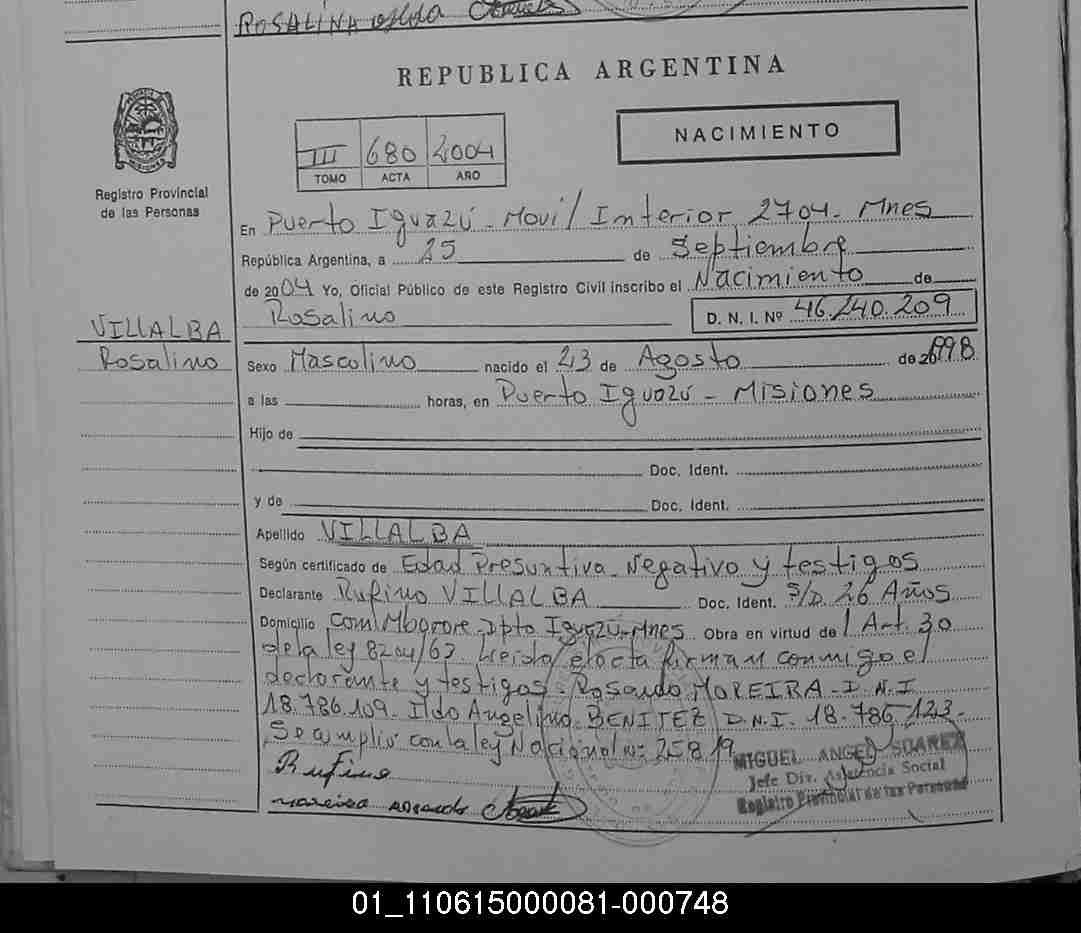 ROSALINA
REPUBLICA ARGENTINA
NACIMIENTO
III 680 2004
TOMO ACTA AÑO
Registro Provincial
de las Personas
En Puerto Iguazú - Movil Interior 2704 - Mnes
República Argentina, a 25 de Septiembre
de 2004 Yo, Oficial Público de este Registro Civil inscribo el Nacimiento de
Rosalino D. N. I. Nº 46.240.209
VILLALBA
Rosalino
Sexo Masculino nacido el 23 de Agosto de 1998
a las horas, en Puerto Iguazú - Misiones
Hijo de
Doc. Ident.
y de Doc. Ident.
Apellido VILLALBA
Según certificado de Edad Presuntiva Negativo y testigos
Declarante Rufino VILLALBA Doc. Ident. S/D. 26 Años
Domicilio Com. Mbororé - Dpto Iguazú - Mnes Obra en virtud de l Art. 30
de la ley 8204/63 Leida el acta firman conmigo el
declarante y testigos - Rosardo MOREIRA - D.N.I
18.786.109 - Ildo Angelino BENITEZ D.N.I. 18.786.123 -
Se cumplió con la ley Nacional Nº 25819
Rufino
MIGUEL ANGEL SUAREZ
Jefe Div. Asistencia Social
Registro Provincial de las Personas
moreira rosardo
01_110615000081-000748